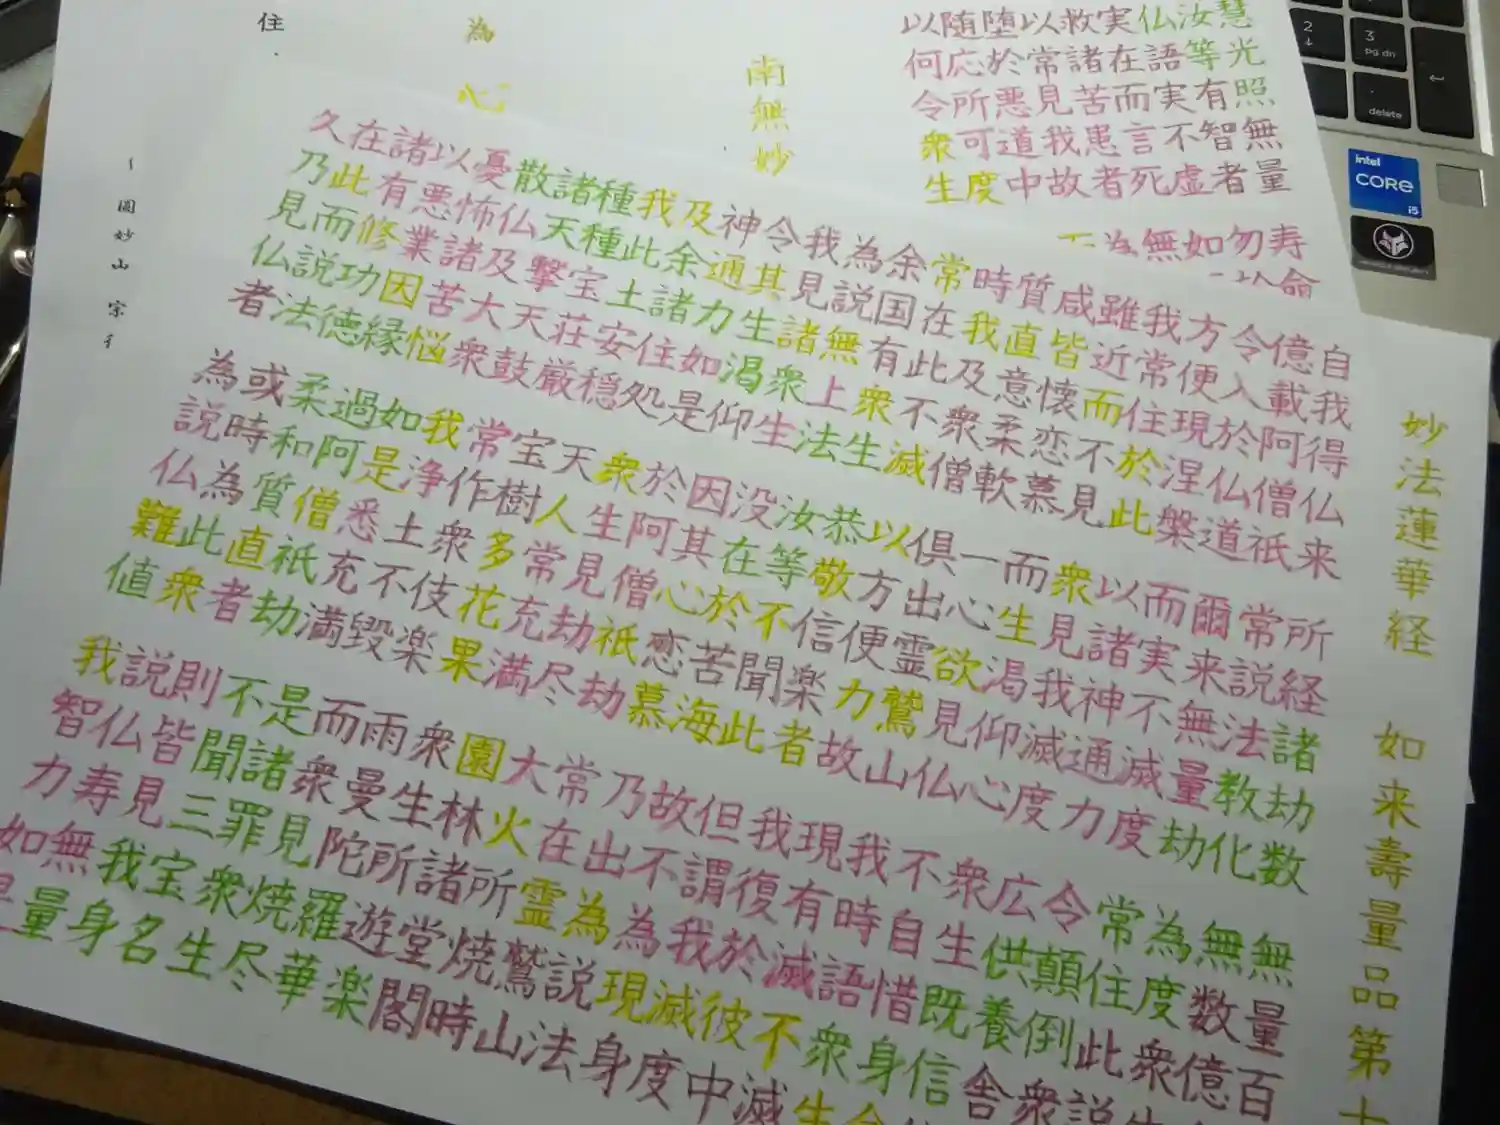 妙法蓮華経 如来壽量品第十
自我得仏来 所経諸劫数 無量百
億載阿僧祇 常説法教化 無数億
令入於仏道 爾来無量劫 為度衆生
方便現涅槃 而実不滅度 常住此説
我常住於此 以諸神通力 令顛倒衆
雖近而不見 衆見我滅度 広供養舎
咸皆懐恋慕 而生渇仰心 衆生既信
質直意柔軟 一心欲見仏 不自惜身命
時我及衆僧 倶出霊鷲山 我時語衆生
常在此不滅 以方便力故 現有滅不
余国有衆生 恭敬信楽者 我復於彼中
為説無上法 汝等不聞此 但謂我滅度
我見諸衆生 没在於苦海 故不為現身
令其生渇仰 因其心恋慕 乃出為説法
神通力如是 於阿僧祇劫 常在霊鷲山
及余諸住処 衆生見劫尽 大火所焼時
我此土安穏 天人常充満 園林諸堂閣
種種宝荘厳 宝樹多花果 衆生所遊楽
諸天撃天鼓 常作衆伎楽 雨曼陀羅華
散仏及大衆 我浄土不毀 而衆見焼尽
憂怖諸苦悩 如是悉充満 是諸罪衆生
以悪業因縁 過阿僧祇劫 不聞三宝名
諸有修功徳 柔和質直者 則皆見我身
在此而説法 或時為此衆 説仏寿無量
久乃見仏者 為説仏難値 我智力如是
慧光照無量 寿命
汝等有智者 勿以
仏語実不虚 如
実在而言死 無
救諸苦患者 為
以常見我故
堕於悪道中
随応所可度
以何令衆生
南無妙
為
心
住
圓妙山 宗
2
3
pg dn
delete
intel
CORE
i5